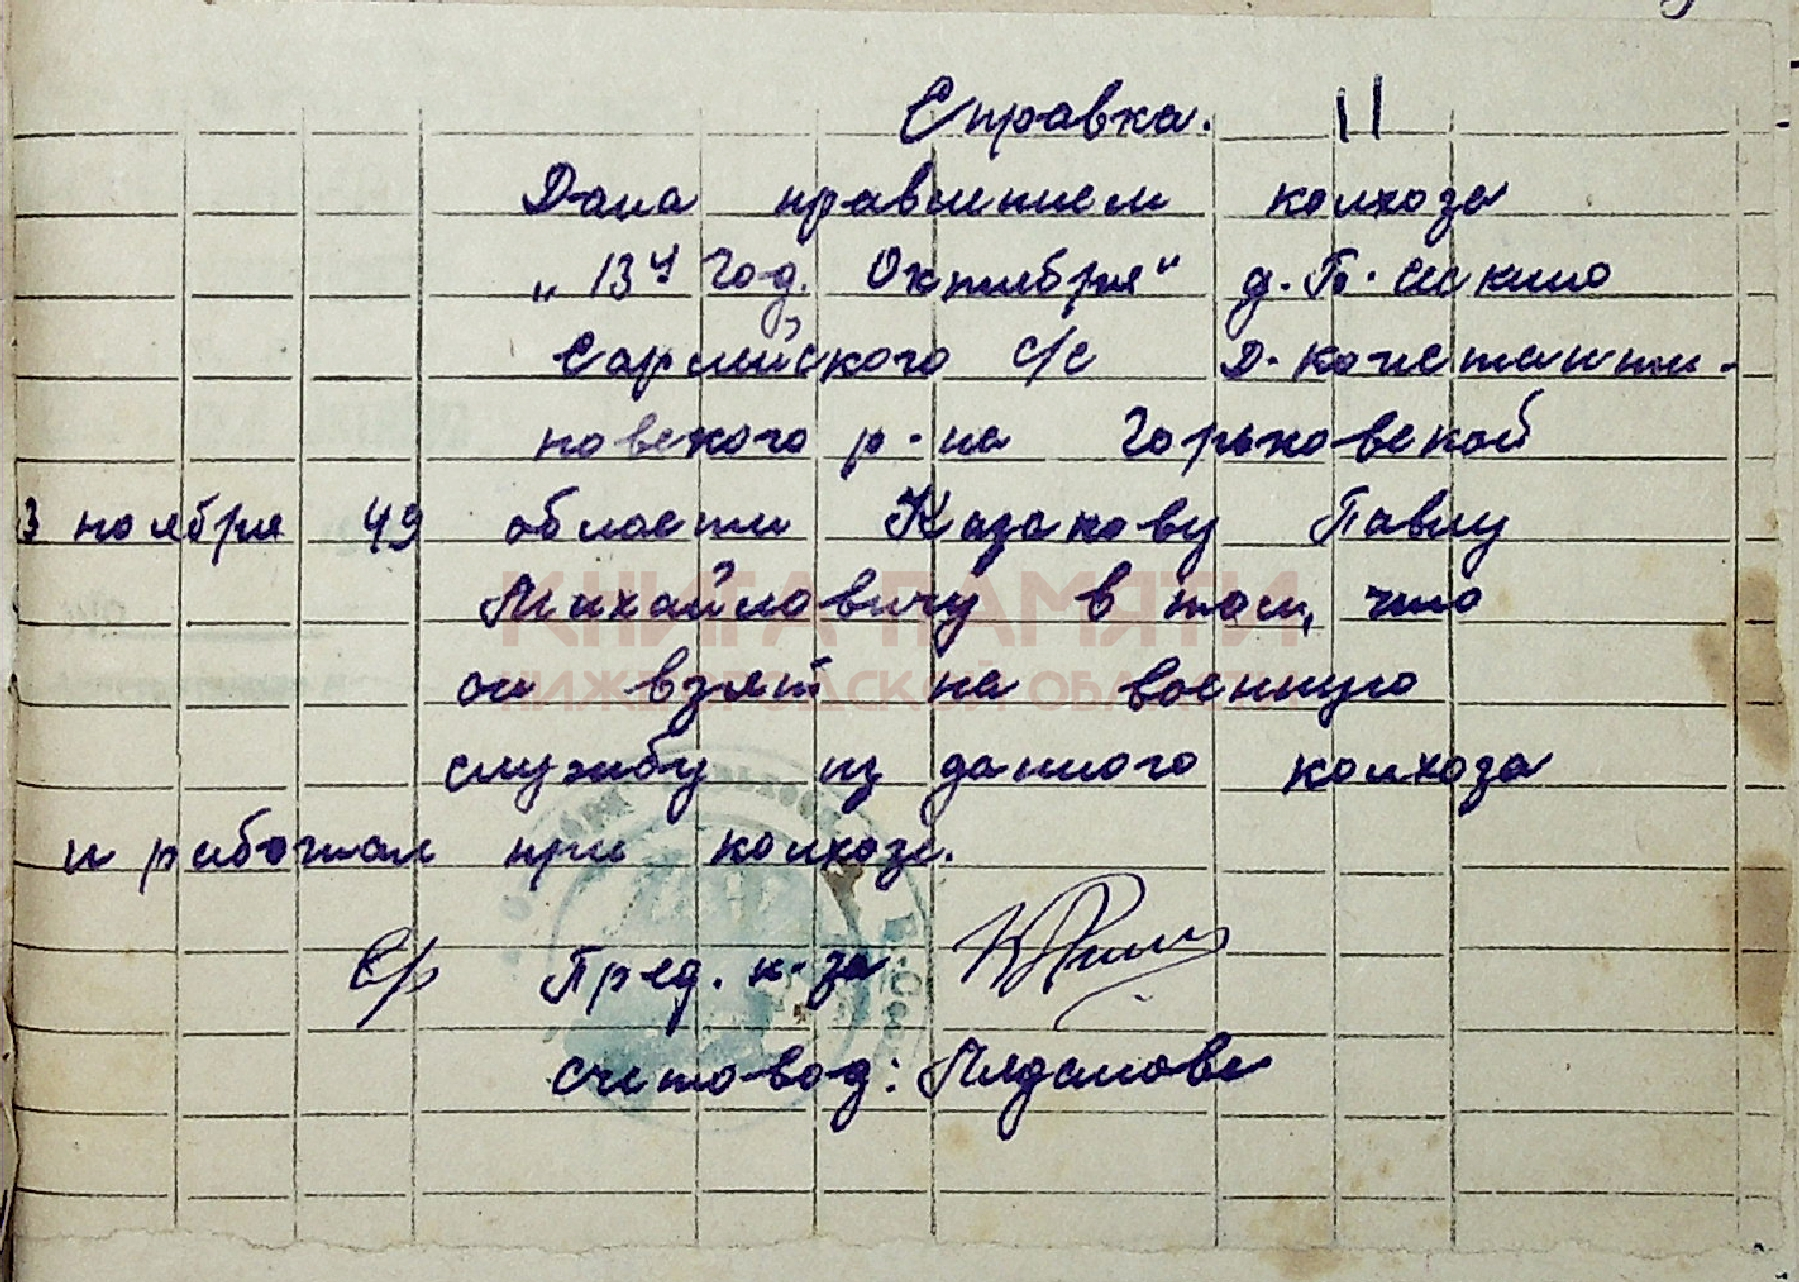 Справка. 11
Дана правлением колхоза
„13й год. Октября" д. П. Искино
Сарлейского с/с Д-Константи-
новского р-на Горьковской
3 ноября 49 области Казакову Павлу
Михайловичу в том, что
КНИГА ПАМЯТИ
он взят на военную
НИЖЕГОРОДСКОЙ ОБЛАСТИ
службу из данного колхоза
и работал при колхозе.
Пред. к-за
Счетовод: